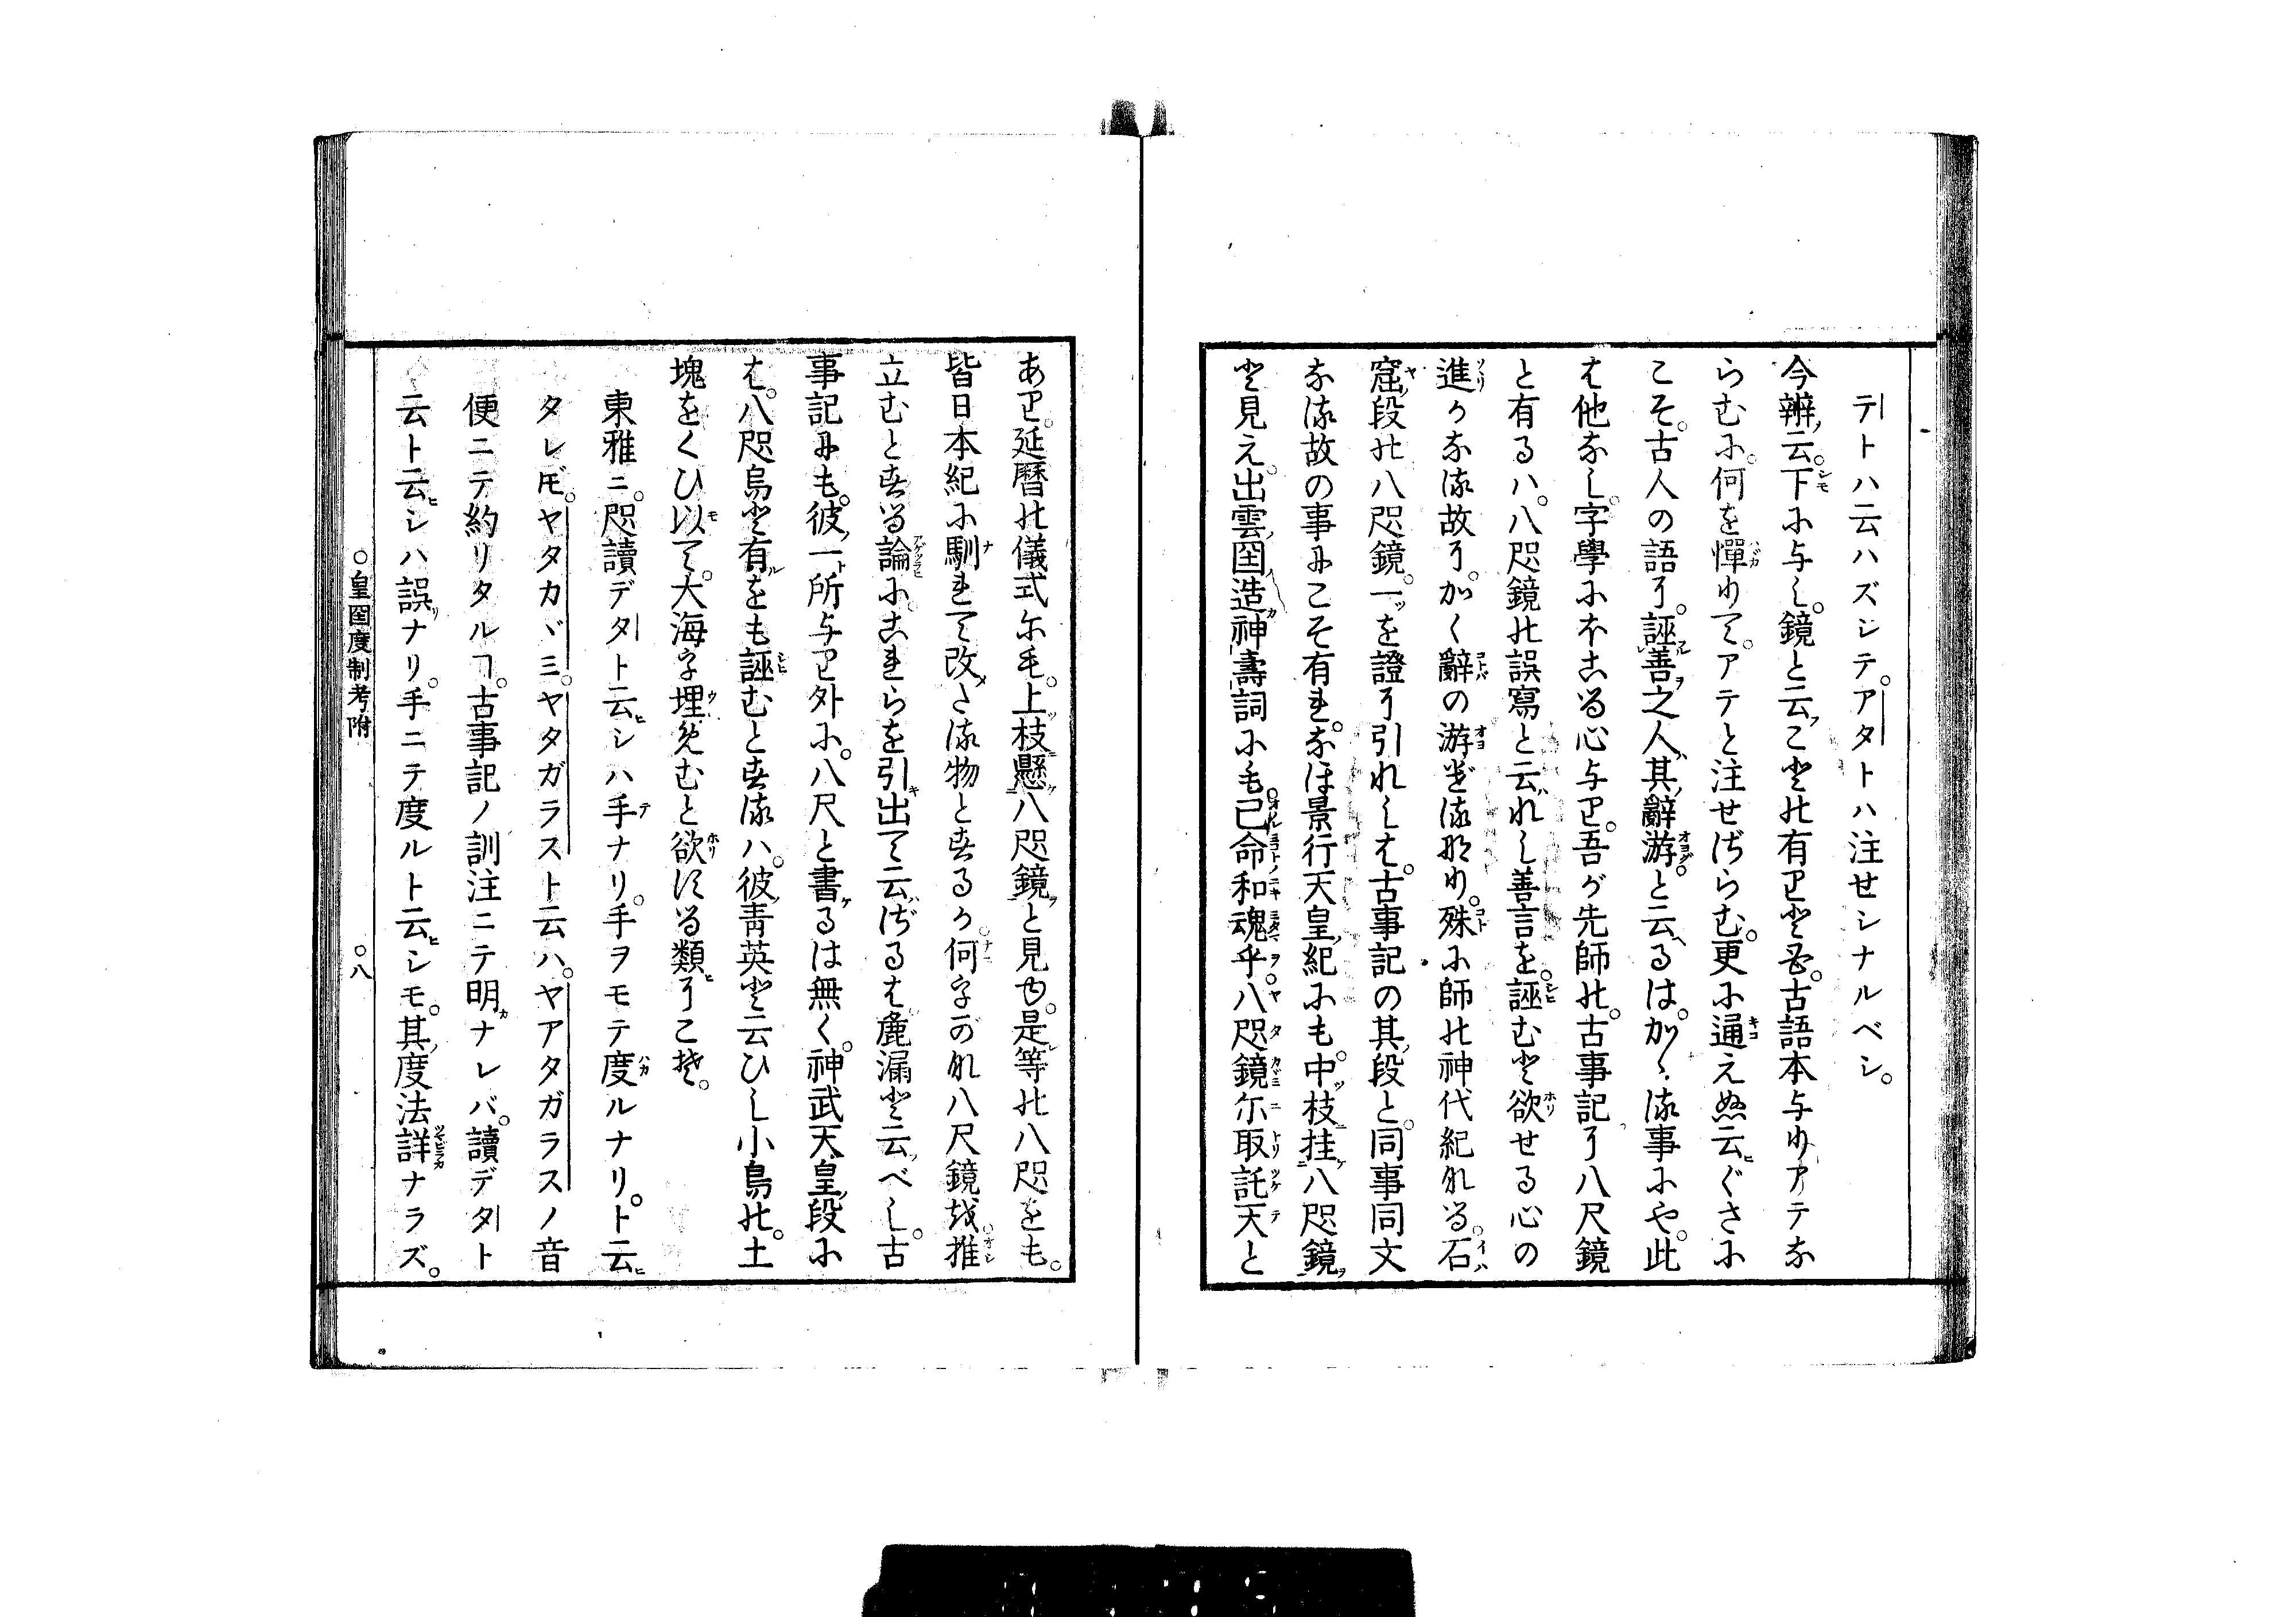 テトハ云ハズシテ。アタトハ注セシナルベシ。
今辨云。下によし。鏡と云こと能有りと否。古語本よりアテな
らむに。何を憚りて。アテと注せざらむ。更に通えぬ云ぐさに
こそ。古人の語に。誣善之人其辭游。と云るは。かゝる事にや。此
は他なし。字學にほこる心より。吾が先師の。古事記に八尺鏡
と有るハ。八咫鏡の誤寫と云れし善言を。誣むと欲せる心の
進りなる故に。かく辭の游ぎるなり。殊に師の神代紀なる。石
窟段の八咫鏡一を證に引れしは。古事記の其段と。同事同文
なる故の事にこそ有れ。なほ景行天皇紀にも。中枝挂八咫鏡
と見え。出雲国造神壽詞にも。己命和魂乎。八咫鏡尓取託天と
あり。延暦の儀式にも。上枝懸八咫鏡と見ゆ。是等の八咫をも。
皆日本紀に馴れて改たる物とするか。何字でなれ八尺鏡を推
立むとする論に。これらを引出て云ざるは麁漏と云べし。古
事記にも。彼一所より外に。八尺と書るは無く。神武天皇段に
は。八咫烏と有をも誣むとするハ。彼青英と云ひし小鳥の。土
塊をくひ以て。大海を埋めむと欲せる類にこそ。
東雅ニ。咫讀デタト云シハ手ナリ。手ヲモテ度ルナリ。ト云
タレ𪜈。ヤタカヾミ。ヤタガラスト云ハ。ヤアタガラスノ音
便ニテ約リタルヿ。古事記ノ訓注ニテ明ナレバ。讀デタト
云ト云シハ誤ナリ。手ニテ度ルト云シモ。其度法詳ナラズ。
○皇国度制考附　○八